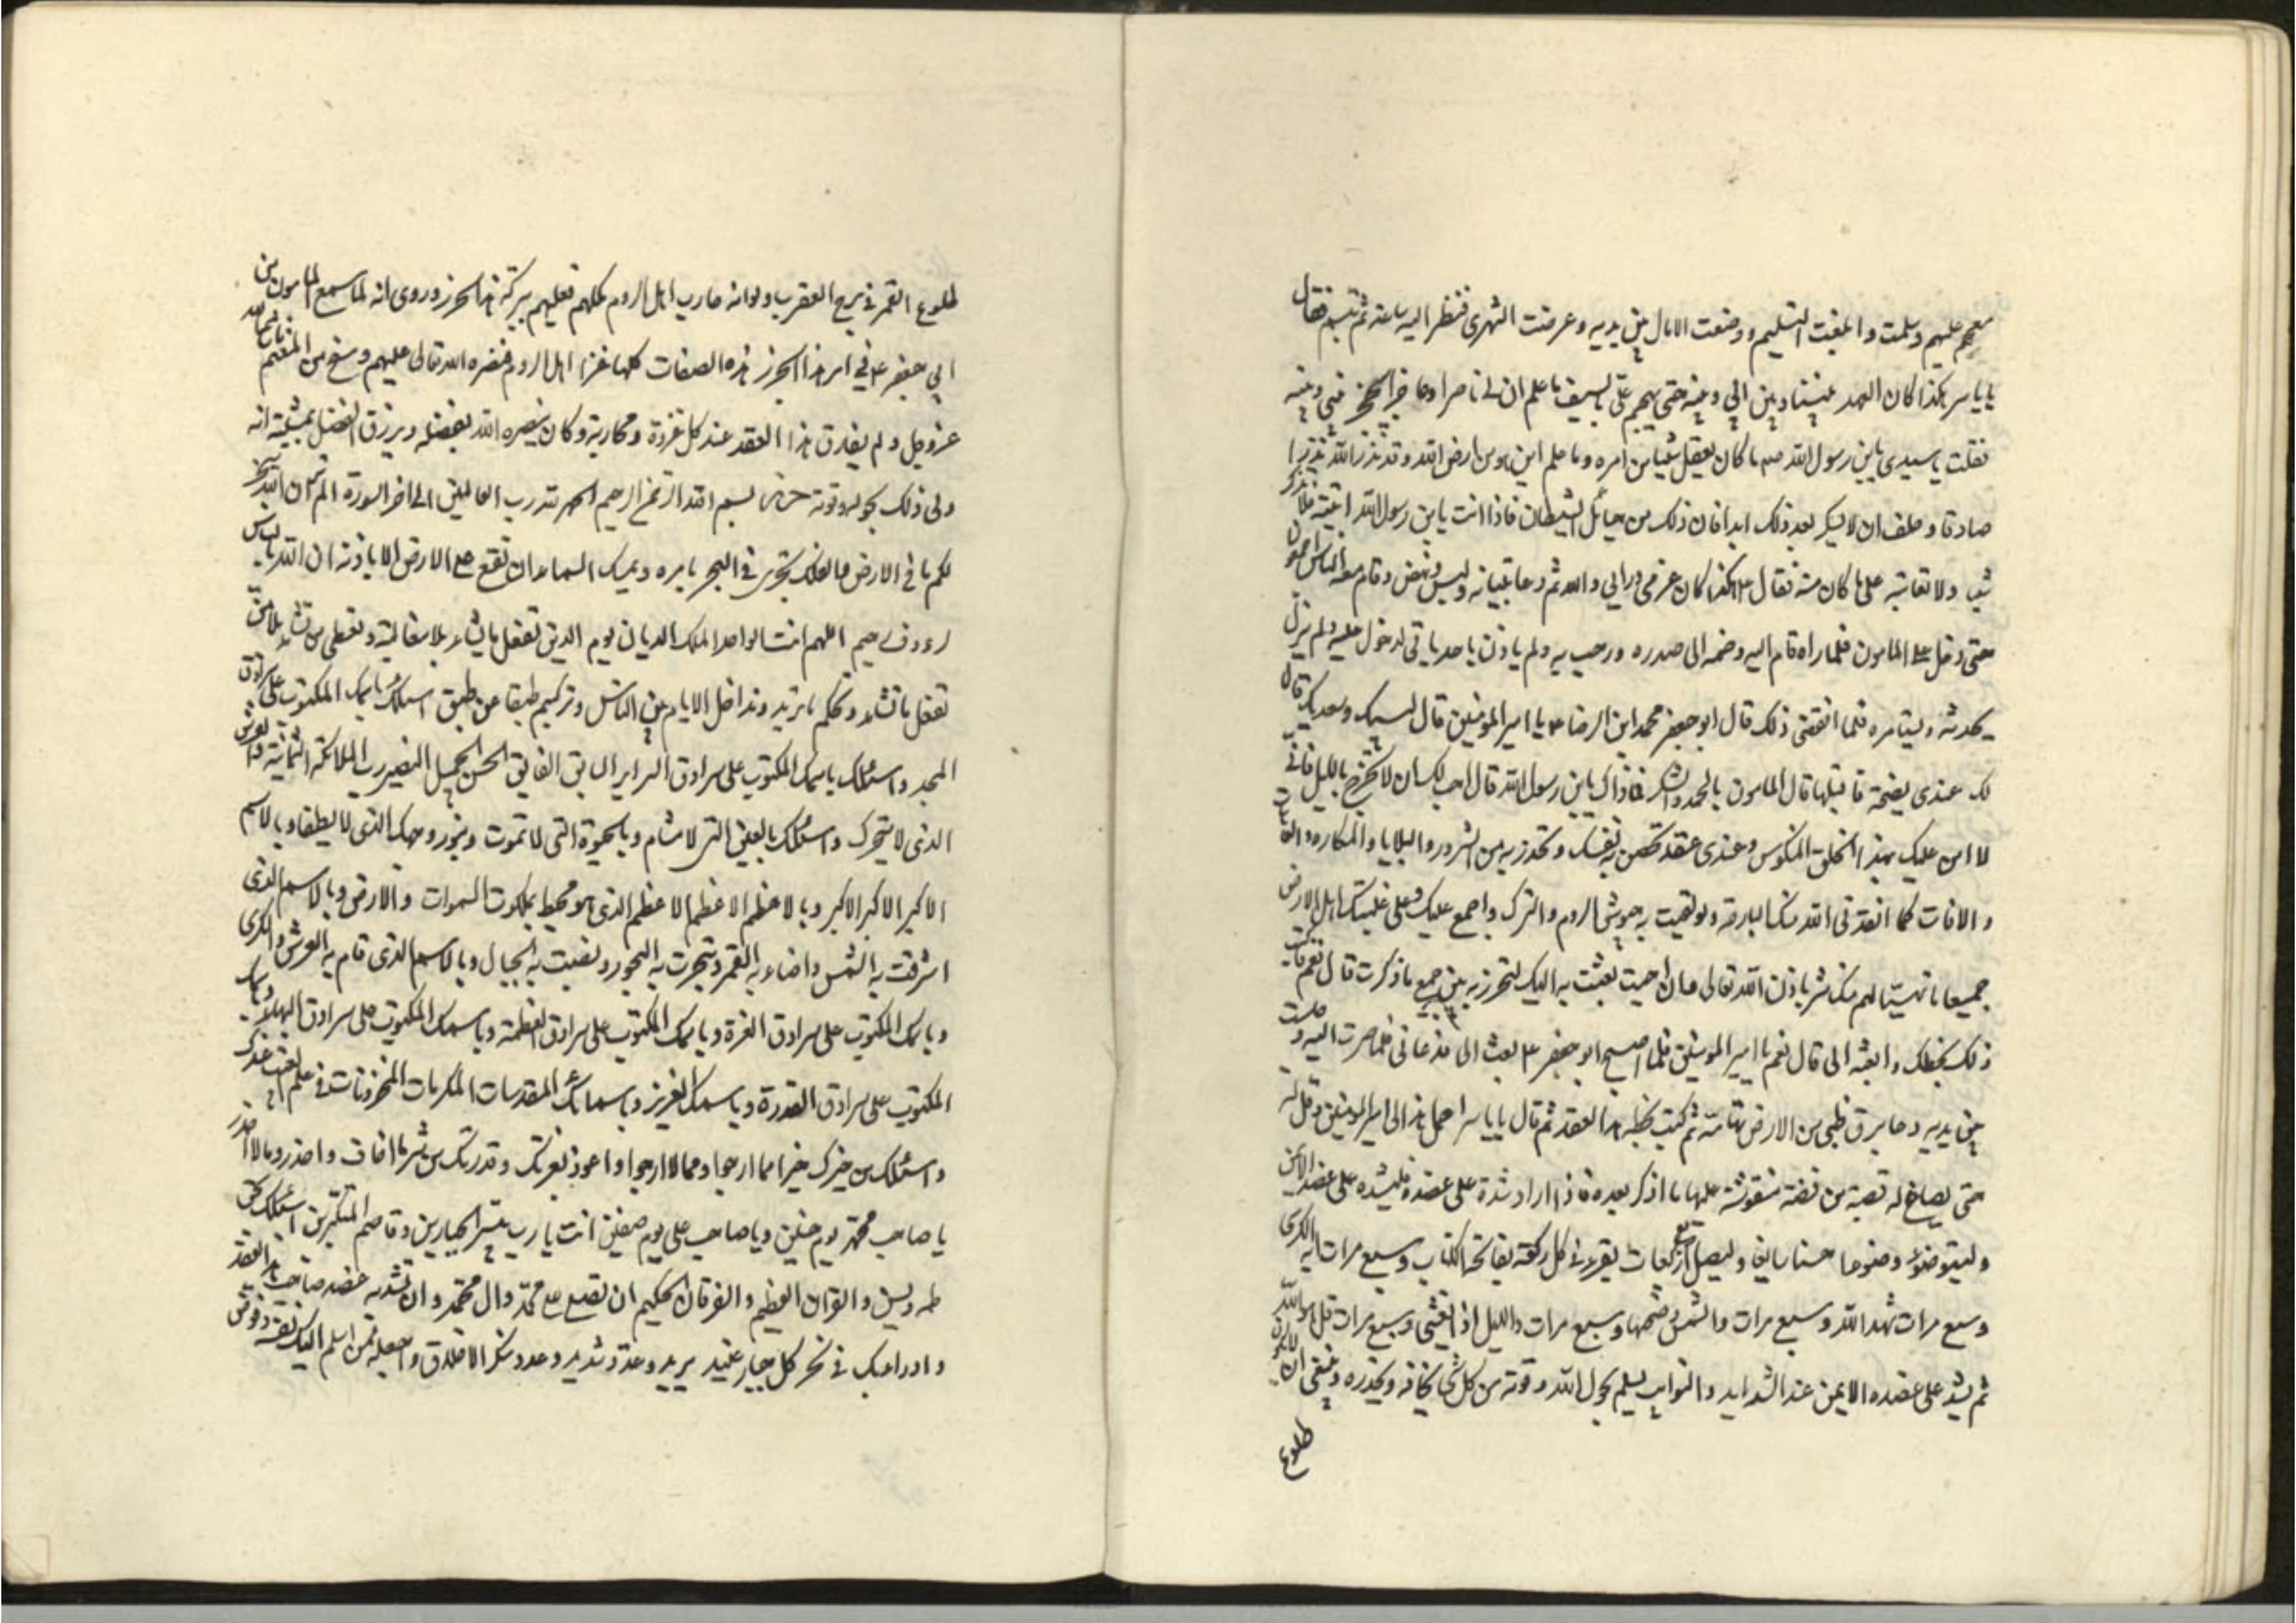 معهم عليهم وسلمت وابلغت التسليم ووضعت الامال بين يديه وعرضت الشهرى فنظر اليه ساعة ثم تبسم فقال
يا ياسر هكذا كان العهد بيننا وبين ابي وبينه حتى يهجم علي بالسيف ما علم ان لي ناصرا وحاجزا يحجز بيني وبينه
فقلت يا سيدي يا بن رسول الله صم ما كان يعقل شيئا من امره وما علم اين هو من ارض الله وقد نذر الله نذرا
صادقا وحلف ان لا يسكر بعد ذلك ابدا فان ذلك من حبائل الشيطان فاذا انت يا بن رسول الله اتيته فلا تذكر
شيئا ولا تعاتبه على ما كان منه فقال ع هكذا كان عزمي ورايي والله ثم دعا بثيابه ولبس ونهض وقام معه الناس اجمعون
حتى دخل على المامون فلما راه قام اليه وضمه الى صدره ورحب به ولم ياذن باحد ياتي لدخول عليه ولم يزل
يحدثه ويستامره فلما انقضى ذلك قال ابو جعفر محمد ابن الرضا ع يا امير المومنين قال لبيك وسعديك قال
لك عندى نصيحة فاقبلها قال المامون بالحمد والشكر فما ذاك يا بن رسول الله قال احب لك ان لا تخرج بالليل فاني
لا امن عليك بهذا الخلق المنكوس وعندى عقد تحصن به نفسك وتحذر به من الشرور والبلايا والمكاره والعاهات
والافات كما انقذني الله منك البارحة ولو لقيت به جيوش الروم والترك واجمع عليك وعلى غلبتك اهل الارض
جميعا ما تهيئا لهم منك شر باذن الله تعالى فان احببت بعثت به اليك لتحرز به من جميع ما ذكرت قال نعم فاكتب
ذلك بخطك وابعثه الى قال نعم يا امير المومنين فلما اصبح ابو جعفر ع بعث الى فدعاني فلما صرت اليه وجلست
بين يديه دعا برق ظبى من الارض تهامة ثم كتب بخطه هذا العقد ثم قال يا ياسر احمل هذا الى امير المومنين وقل له
حتى يصاغ له قصبة من فضة منقوشة عليها ما اذكر بعده فاذا اراد شده على عضده فليشده على عضد الايمن
وليتوضؤ وضوءا حسنا سابغا وليصل اربع ركعات يقرء في كل ركعة بفاتحة الكتاب وسبع مرات اية الكرى
وسبع مرات شهد الله وسبع مرات والشمس وضحيها وسبع مرات والليل اذا يغشى وسبع مرات قل هو الله
ثم يشد على عضده الايمن عند الشدايد والنوايب يسلم بحول الله وقوته من كل شئ يخافه ويحذره وينبغي ان لا يكون
طلوع
طلوع القمر في برج العقرب ولو انه حارب اهل الروم كلهم لغلبهم ببركة هذا الحرز وروى انه لما سمع المامون من
ابي جعفر ع في امر هذا الحرز هذه الصفات كلها غزا اهل الروم فنصره الله تعالى عليهم ومنح من المغنم ما شاء الله
عزوجل ولم يفارق هذا العقد عند كل غزوة ومحاربة وكان ينصره الله بفضله ويرزق الفضل بمشيته انه
ولى ذلك بحوله وقوته بسم الله الرحمن الرحيم الحمد لله رب العالمين الى اخر السورة الم تر ان الله سخر
لكم ما في الارض والفلك تجرى في البحر بامره ويمسك السماء ان تقع على الارض الا باذنه ان الله بالناس
لرءوف رحيم اللهم انت الواحد الملك الديان يوم الدين تفعل ما تشاء بلا مغالبة وتعطى من تشاء بلا من
تفعل ما تشاء وتحكم ما تريد وتداول الايام بين الناس وتركبهم طبقا عن طبق اسئلك باسمك المكتوب على سرادق
المجد واسئلك باسمك المكتوب على سرادق السراير السابق الفايق الحسن الجميل النصير رب الملائكة الثمانية والعرش
الذى لا يتحرك واسئلك بالعين التى لا تنام وبالحيوة التى لا تموت وبنور وجهك الذى لا يطفا وبالاسم
الاكبر الاكبر الاكبر وبالاعظم الاعظم الاعظم الذى هو محيط بملكوت السموات والارض وبالاسم الذى
اشرقت به الشمس واضاء به القمر وسجرت به البحور ونصبت به الجبال وبالاسم الذى قام به العرش والكرى
وباسمك المكتوب على سرادق العزة وباسمك المكتوب على سرادق العظمة وباسمك المكتوب على سرادق البهاء وباسمك
المكتوب على سرادق القدرة وباسمك العزيز وباسمائك المقدسات المكرمات المخزونات في علم الغيب عندك
واسئلك من خيرك خيرا مما ارجوا ومما لا ارجوا واعوذ بعزتك وقدرتك من شر ما اخاف واحذر وما لا احذر
يا صاحب محمد يوم حنين ويا صاحب على يوم صفين انت يا رب مبير الجبارين وقاصم المتكبرين اسئلك بحق
طه ويس والقران العظيم والفرقان الحكيم ان تصلى على محمد وال محمد وان تشد به عضد صاحب هذا العقد
وادرا بك في نحر كل جبار عنيد مريد وعدو شديد وعدو منكر الاخلاق واجعله ممن اسلم اليك نفسه وفوض